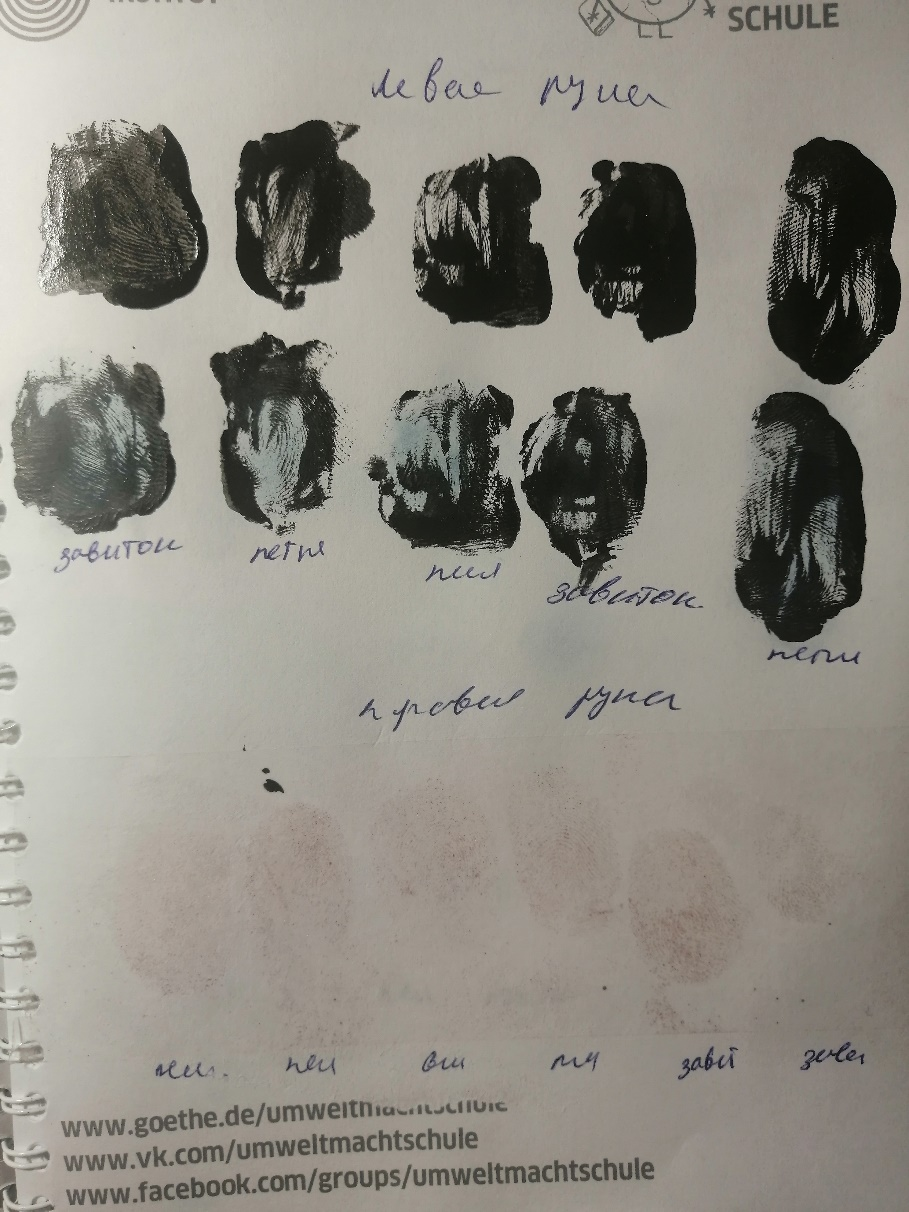 INSTITUT
SCHULE
левая рука
завиток петля
завиток
петли
правая рука
завит
www.goethe.de/umweltmachtschule
www.vk.com/umweltmachtschule
www.facebook.com/groups/umweltmachtschule